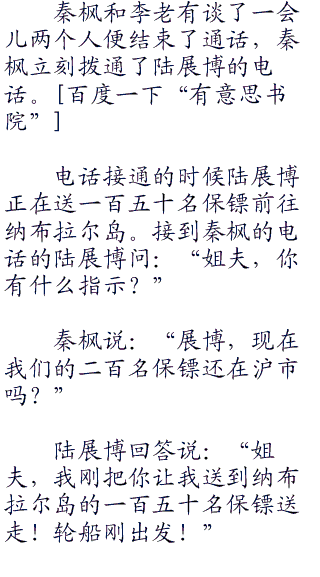 秦枫和李老有谈了一会
儿两个人便结束了通话，秦
枫立刻拨通了陆展博的电
话。[百度一下“有意思书
院”]
电话接通的时候陆展博
正在送一百五十名保镖前往
纳布拉尔岛。接到秦枫的电
话的陆展博问：“姐夫，你
有什么指示？”
秦枫说：“展博，现在
我们的二百名保镖还在沪市
吗？”
陆展博回答说：“姐
夫，我刚把你让我送到纳布
拉尔岛的一百五十名保镖送
走！轮船刚出发！”